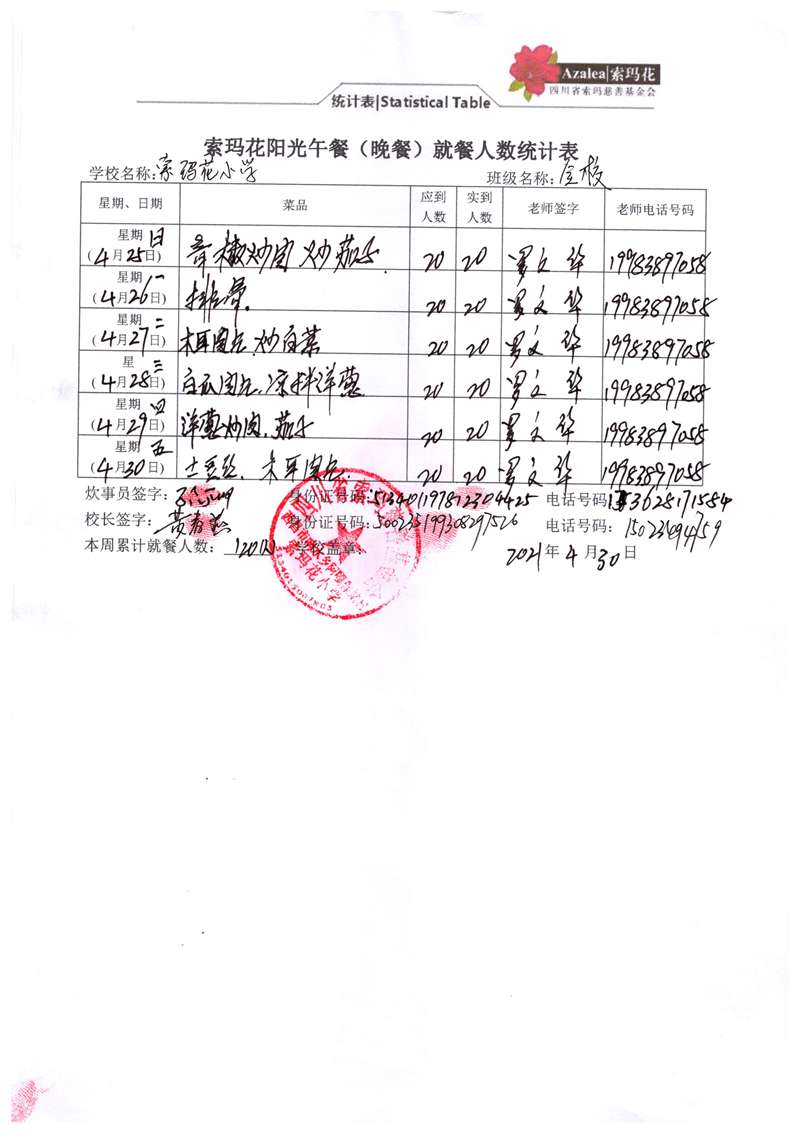 Azalea|索玛花
四川省索玛慈善基金会
统计表|Statistical Table
索玛花阳光午餐（晚餐）就餐人数统计表
学校名称：索玛花小学 班级名称：全校
星期、日期 菜品 应到人数 实到人数 老师签字 老师电话号码
星期日（4月25日） 青椒炒肉 炒茄子 20 20 罗文华 19983897058
星期一（4月26日） 排骨 20 20 罗文华 19983897058
星期二（4月27日） 木耳肉片 炒白菜 20 20 罗文华 19983897058
星三（4月28日） 白瓜肉片 凉拌洋葱 20 20 罗文华 19983897058
星期四（4月29日） 洋葱炒肉 茄子 20 20 罗文华 19983897058
星期五（4月30日） 土豆丝 木耳肉片 20 20 罗文华 19983897058
炊事员签字： 身份证号码：513401197812304425 电话号码：13628171584
校长签字： 身份证号码：500235199308297526 电话号码：15023094759
本周累计就餐人数：120 学校盖章：
2021年4月30日
四川省索玛
索玛花小学